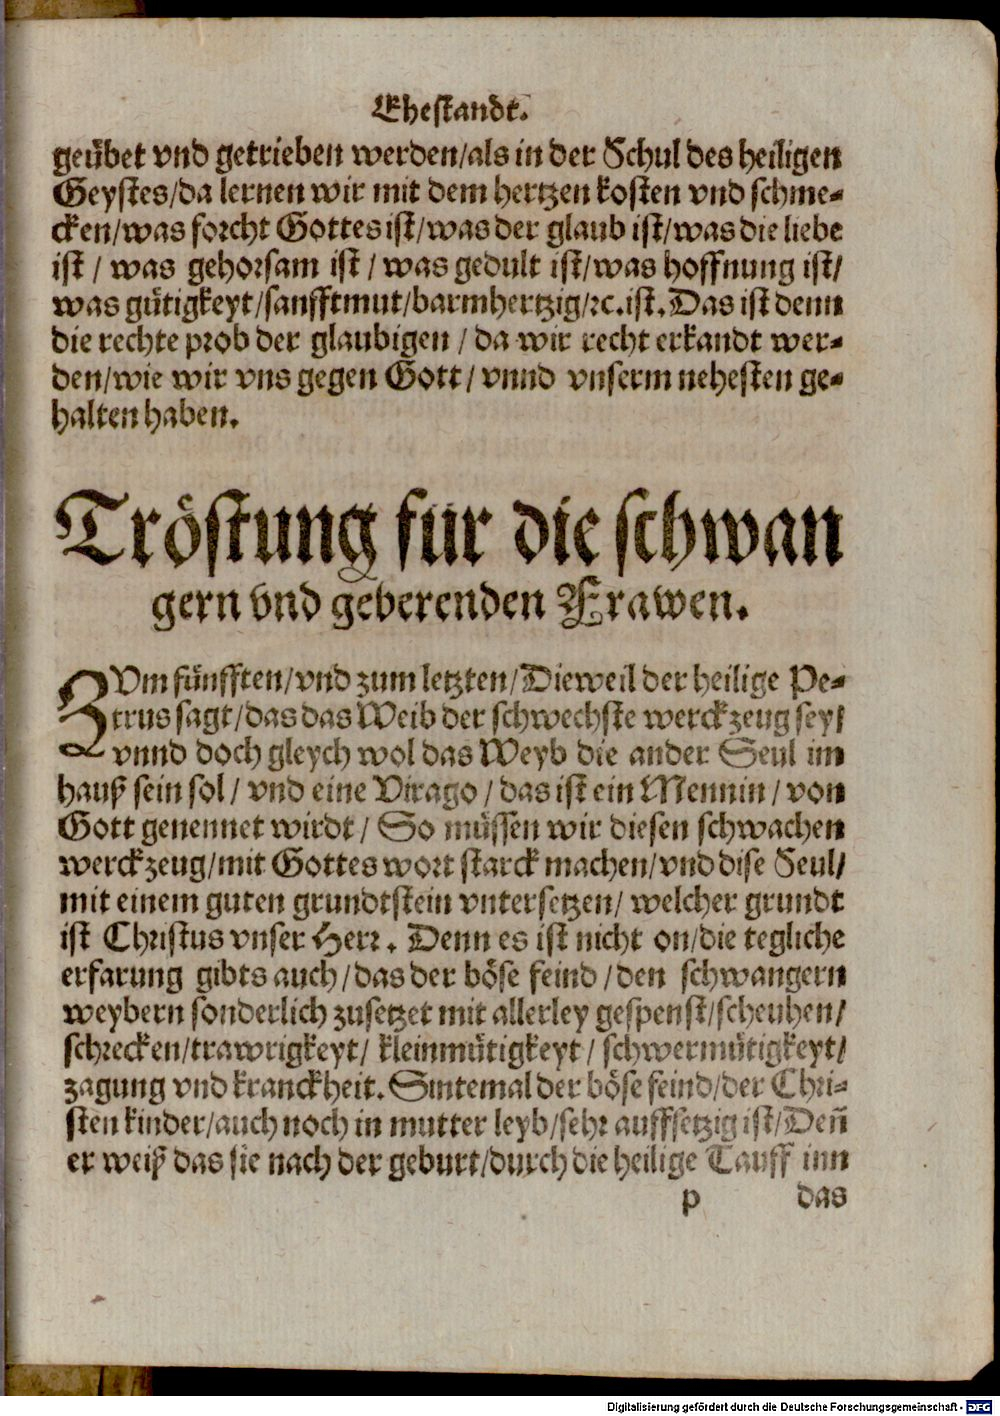 Ehestandt.
geübet vnd getrieben werden/als in der Schul des heiligen
Geystes/da lernen wir mit dem hertzen kosten vnd schme-
cken/was forcht Gottes ist/was der glaub ist/was die liebe
ist / was gehorsam ist / was gedult ist/was hoffnung ist/
was gütigkeyt/sanfftmut/barmhertzig/ꝛc.ist. Das ist denn
die rechte prob der glaubigen / da wir recht erkandt wer-
den/wie wir vns gegen Gott/ vnnd vnserm nehesten ge-
halten haben.
Tröstung für die schwan
gern vnd geberenden Frawen.
ZVm fünfften/vnd zum letzten/Dieweil der heilige Pe-
trus sagt/das das Weib der schwechste werckzeug sey/
vnnd doch gleych wol das Weyb die ander Seul im
hauß sein sol/ vnd eine Virago / das ist ein Mennin / von
Gott genennet wirdt/ So müssen wir diesen schwachen
werckzeug/mit Gottes wort starck machen/vnd dise Seul/
mit einem guten grundtstein vntersetzen/ welcher grundt
ist Christus vnser Herr. Denn es ist nicht on/die tegliche
erfarung gibts auch/das der böse feind /den schwangern
weybern sonderlich zusetzet mit allerley gespenst/scheuhen/
schrecken/trawrigkeyt/ kleinmütigkeyt/ schwermütigkeyt/
zagung vnd kranckheit. Sintemal der böse feind/der Chri-
sten kinder/auch noch in mutter leyb/sehr auffsetzig ist/Deñ
er weiß das sie nach der geburt/durch die heilige Tauff inn
p das
Digitalisierung gefördert durch die Deutsche Forschungsgemeinschaft - DFG